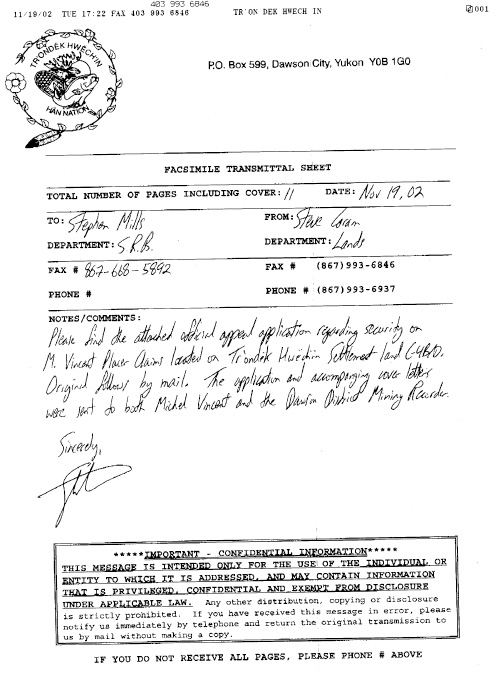 403 993 6846
11/19/02 TUE 17:22 FAX 403 993 6846 TR'ON DEK HWECH IN 001
TR'ONDEK HWECH'IN
HÄN NATION
P.O. Box 599, Dawson City, Yukon Y0B 1G0
FACSIMILE TRANSMITTAL SHEET
TOTAL NUMBER OF PAGES INCLUDING COVER: 11 DATE: Nov 19, 02
TO: Stephen Mills FROM: Steve Caram
DEPARTMENT: S.R.B. DEPARTMENT: Lands
FAX # 867-668-5892 FAX # (867)993-6846
PHONE # PHONE # (867)993-6937
NOTES/COMMENTS:
Please find the attached official appeal application regarding security on
M. Vincent Placer Claims located on Tr'ondek Hwechin Settlement land
Original follows by mail. The application and accompanying cover letters
were sent to both Michel Vincent and the Dawson District Mining Recorder.
Sincerely,
*****IMPORTANT - CONFIDENTIAL INFORMATION*****
THIS MESSAGE IS INTENDED ONLY FOR THE USE OF THE INDIVIDUAL OR
ENTITY TO WHICH IT IS ADDRESSED, AND MAY CONTAIN INFORMATION
THAT IS PRIVILEGED, CONFIDENTIAL AND EXEMPT FROM DISCLOSURE
UNDER APPLICABLE LAW. Any other distribution, copying or disclosure
is strictly prohibited. If you have received this message in error, please
notify us immediately by telephone and return the original transmission to
us by mail without making a copy.
IF YOU DO NOT RECEIVE ALL PAGES, PLEASE PHONE # ABOVE